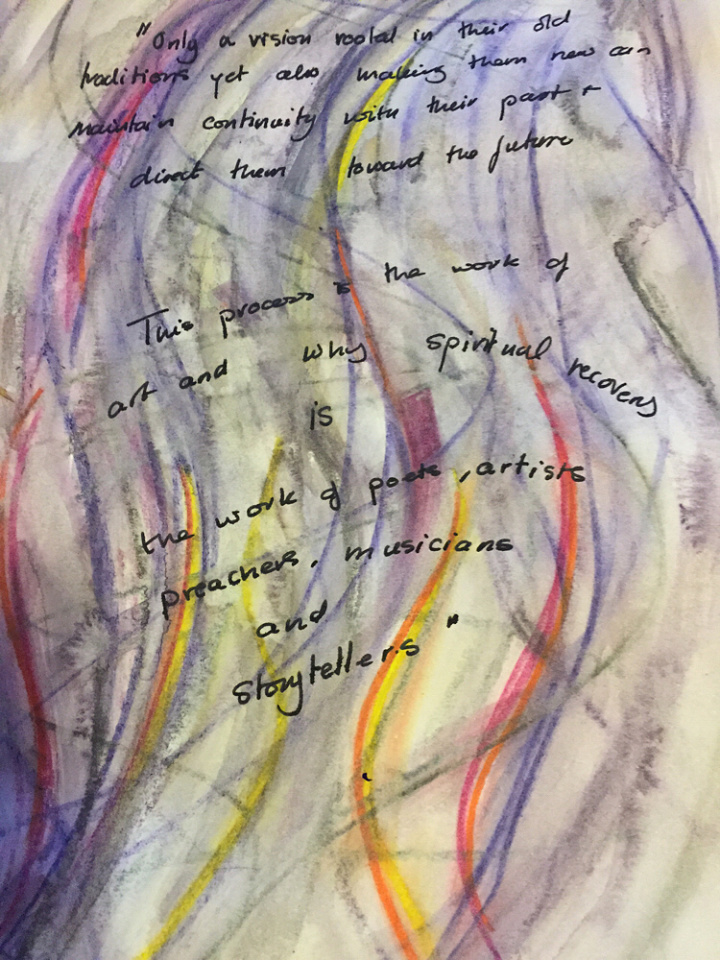 "Only a vision rooted in their old
traditions yet also making them new can
maintain continuity with their past +
direct them toward the future
This process is the work of
art and why spiritual recovery
is
the work of poets, artists
preachers, musicians
and
storytellers"